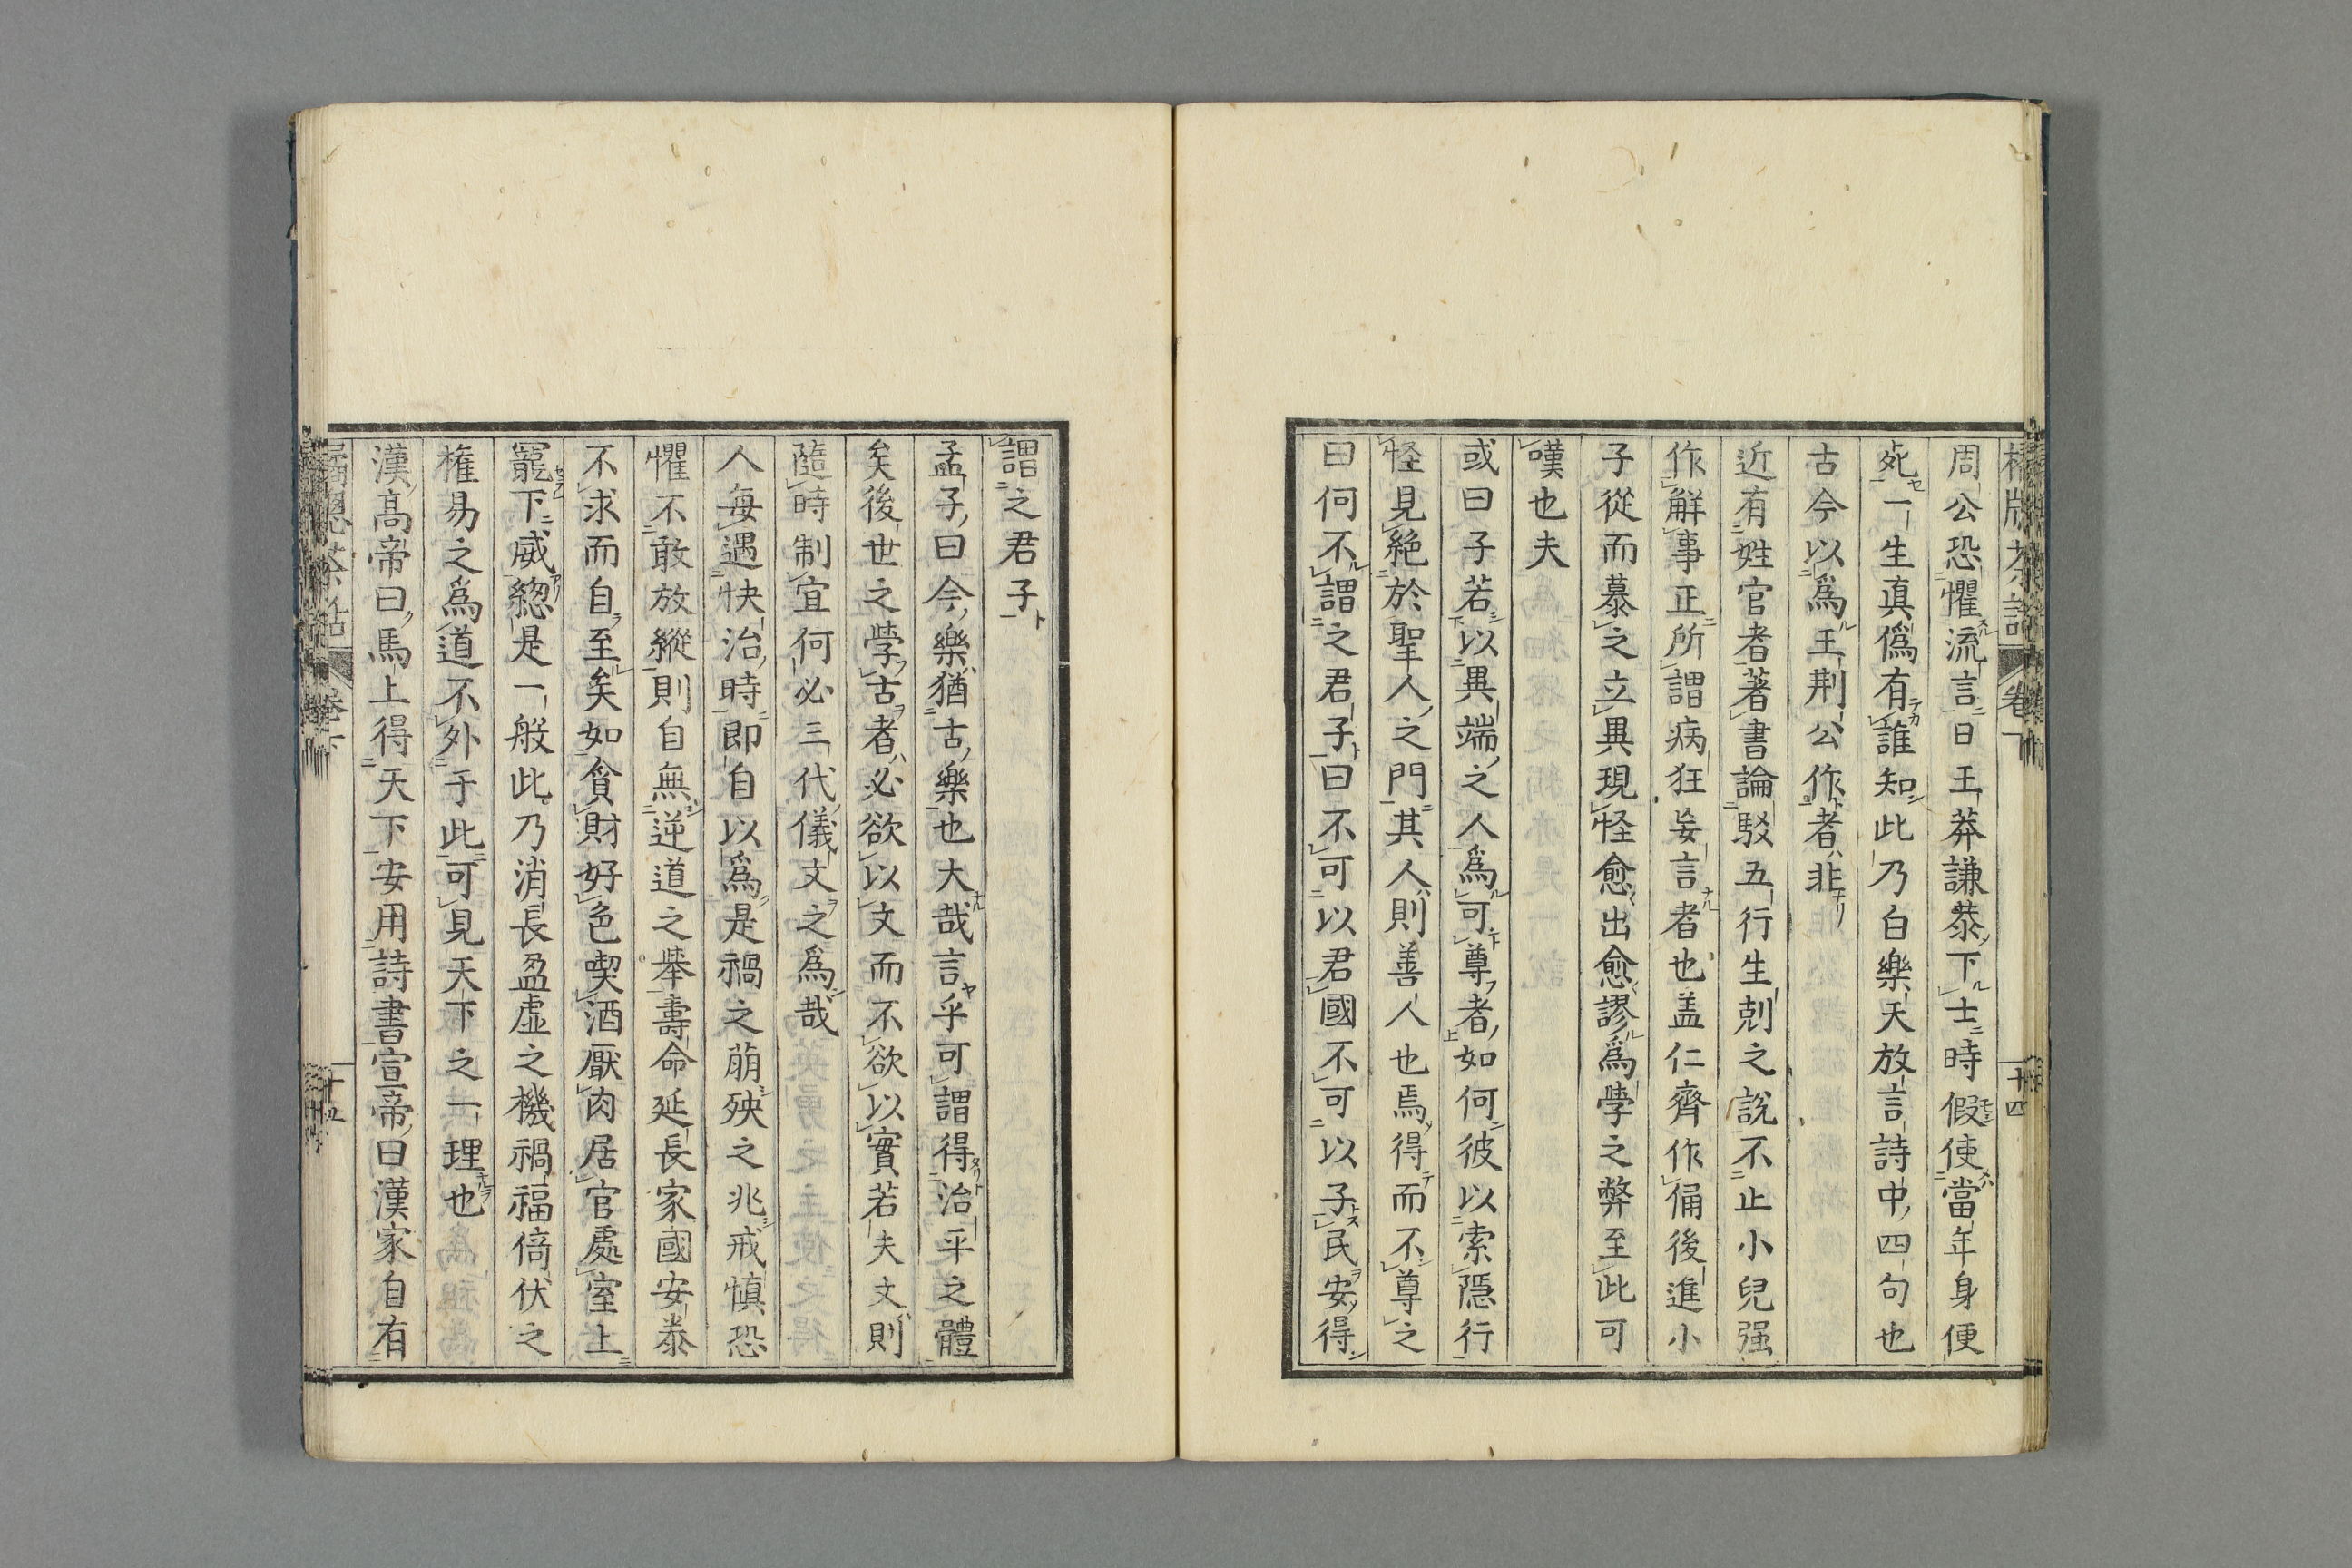 茶話
卷下
十四
周公恐懼流言日王莽謙恭下士時假使當年身便
死一生真僞有誰知此乃白樂天放言詩中四句也
古今以爲王荆公作者非
近有姓官者著書論駁五行生剋之說不止小兒强
作解事正所謂病狂妄言者也盖仁齊作俑後進小
子從而慕之立異現怪愈出愈謬爲學之弊至此可
嘆也夫
或曰子若以異端之人爲可尊者如何彼以索隱行
怪見絶於聖人之門其人則善人也焉得而不尊之
曰何不謂之君子曰不可以君國不可以子民安得
謂之君子
孟子曰今樂猶古樂也大哉言乎可謂得治平之體
矣後世之學古者必欲以文而不欲以實若夫文則
隨時制宜何必三代儀文之爲哉
人每遇快治時即自以爲是禍之萠殃之兆戒慎恐
懼不敢放縱則自無逆道之擧壽命延長家國安泰
不求而自至矣如貪財好色喫酒厭肉居官處室上
寵下威總是一般此乃消長盈虛之機禍福倚伏之
權易之爲道不外于此可見天下之一理也
漢高帝曰馬上得天下安用詩書宣帝曰漢家自有
茶話
卷下
十五